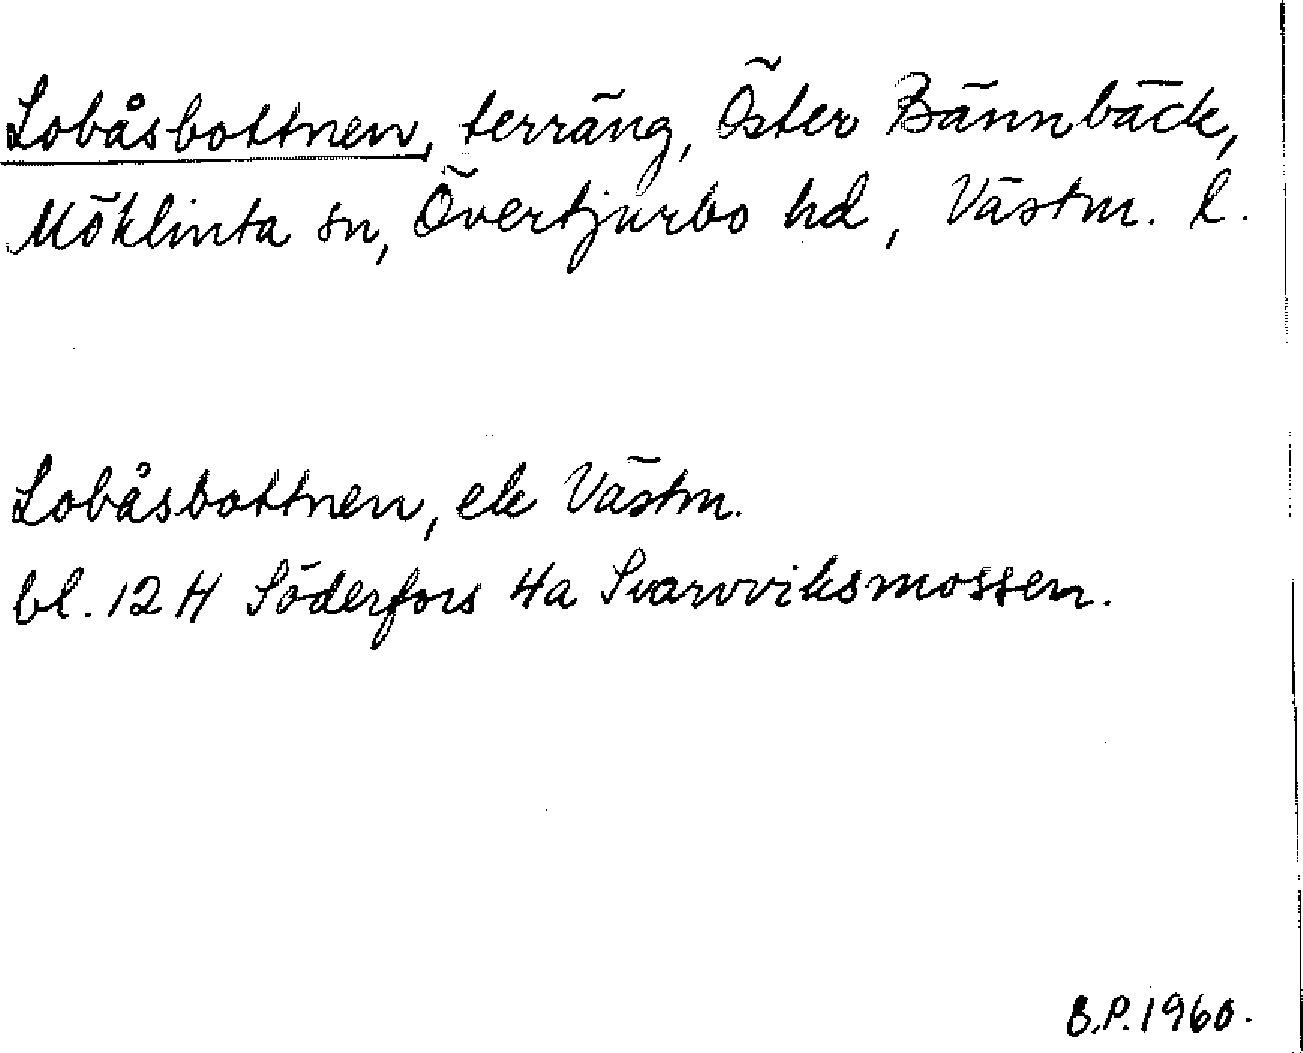 Lobåsbottnen, terräng, Öster Bännbäck,
Möklinta sn, Övertjurbo hd, Västm. l.
Lobåsbottnen, ek Västm.
bl. 12 H Söderfors 4a Svarvviksmossen.
B.P. 1960.